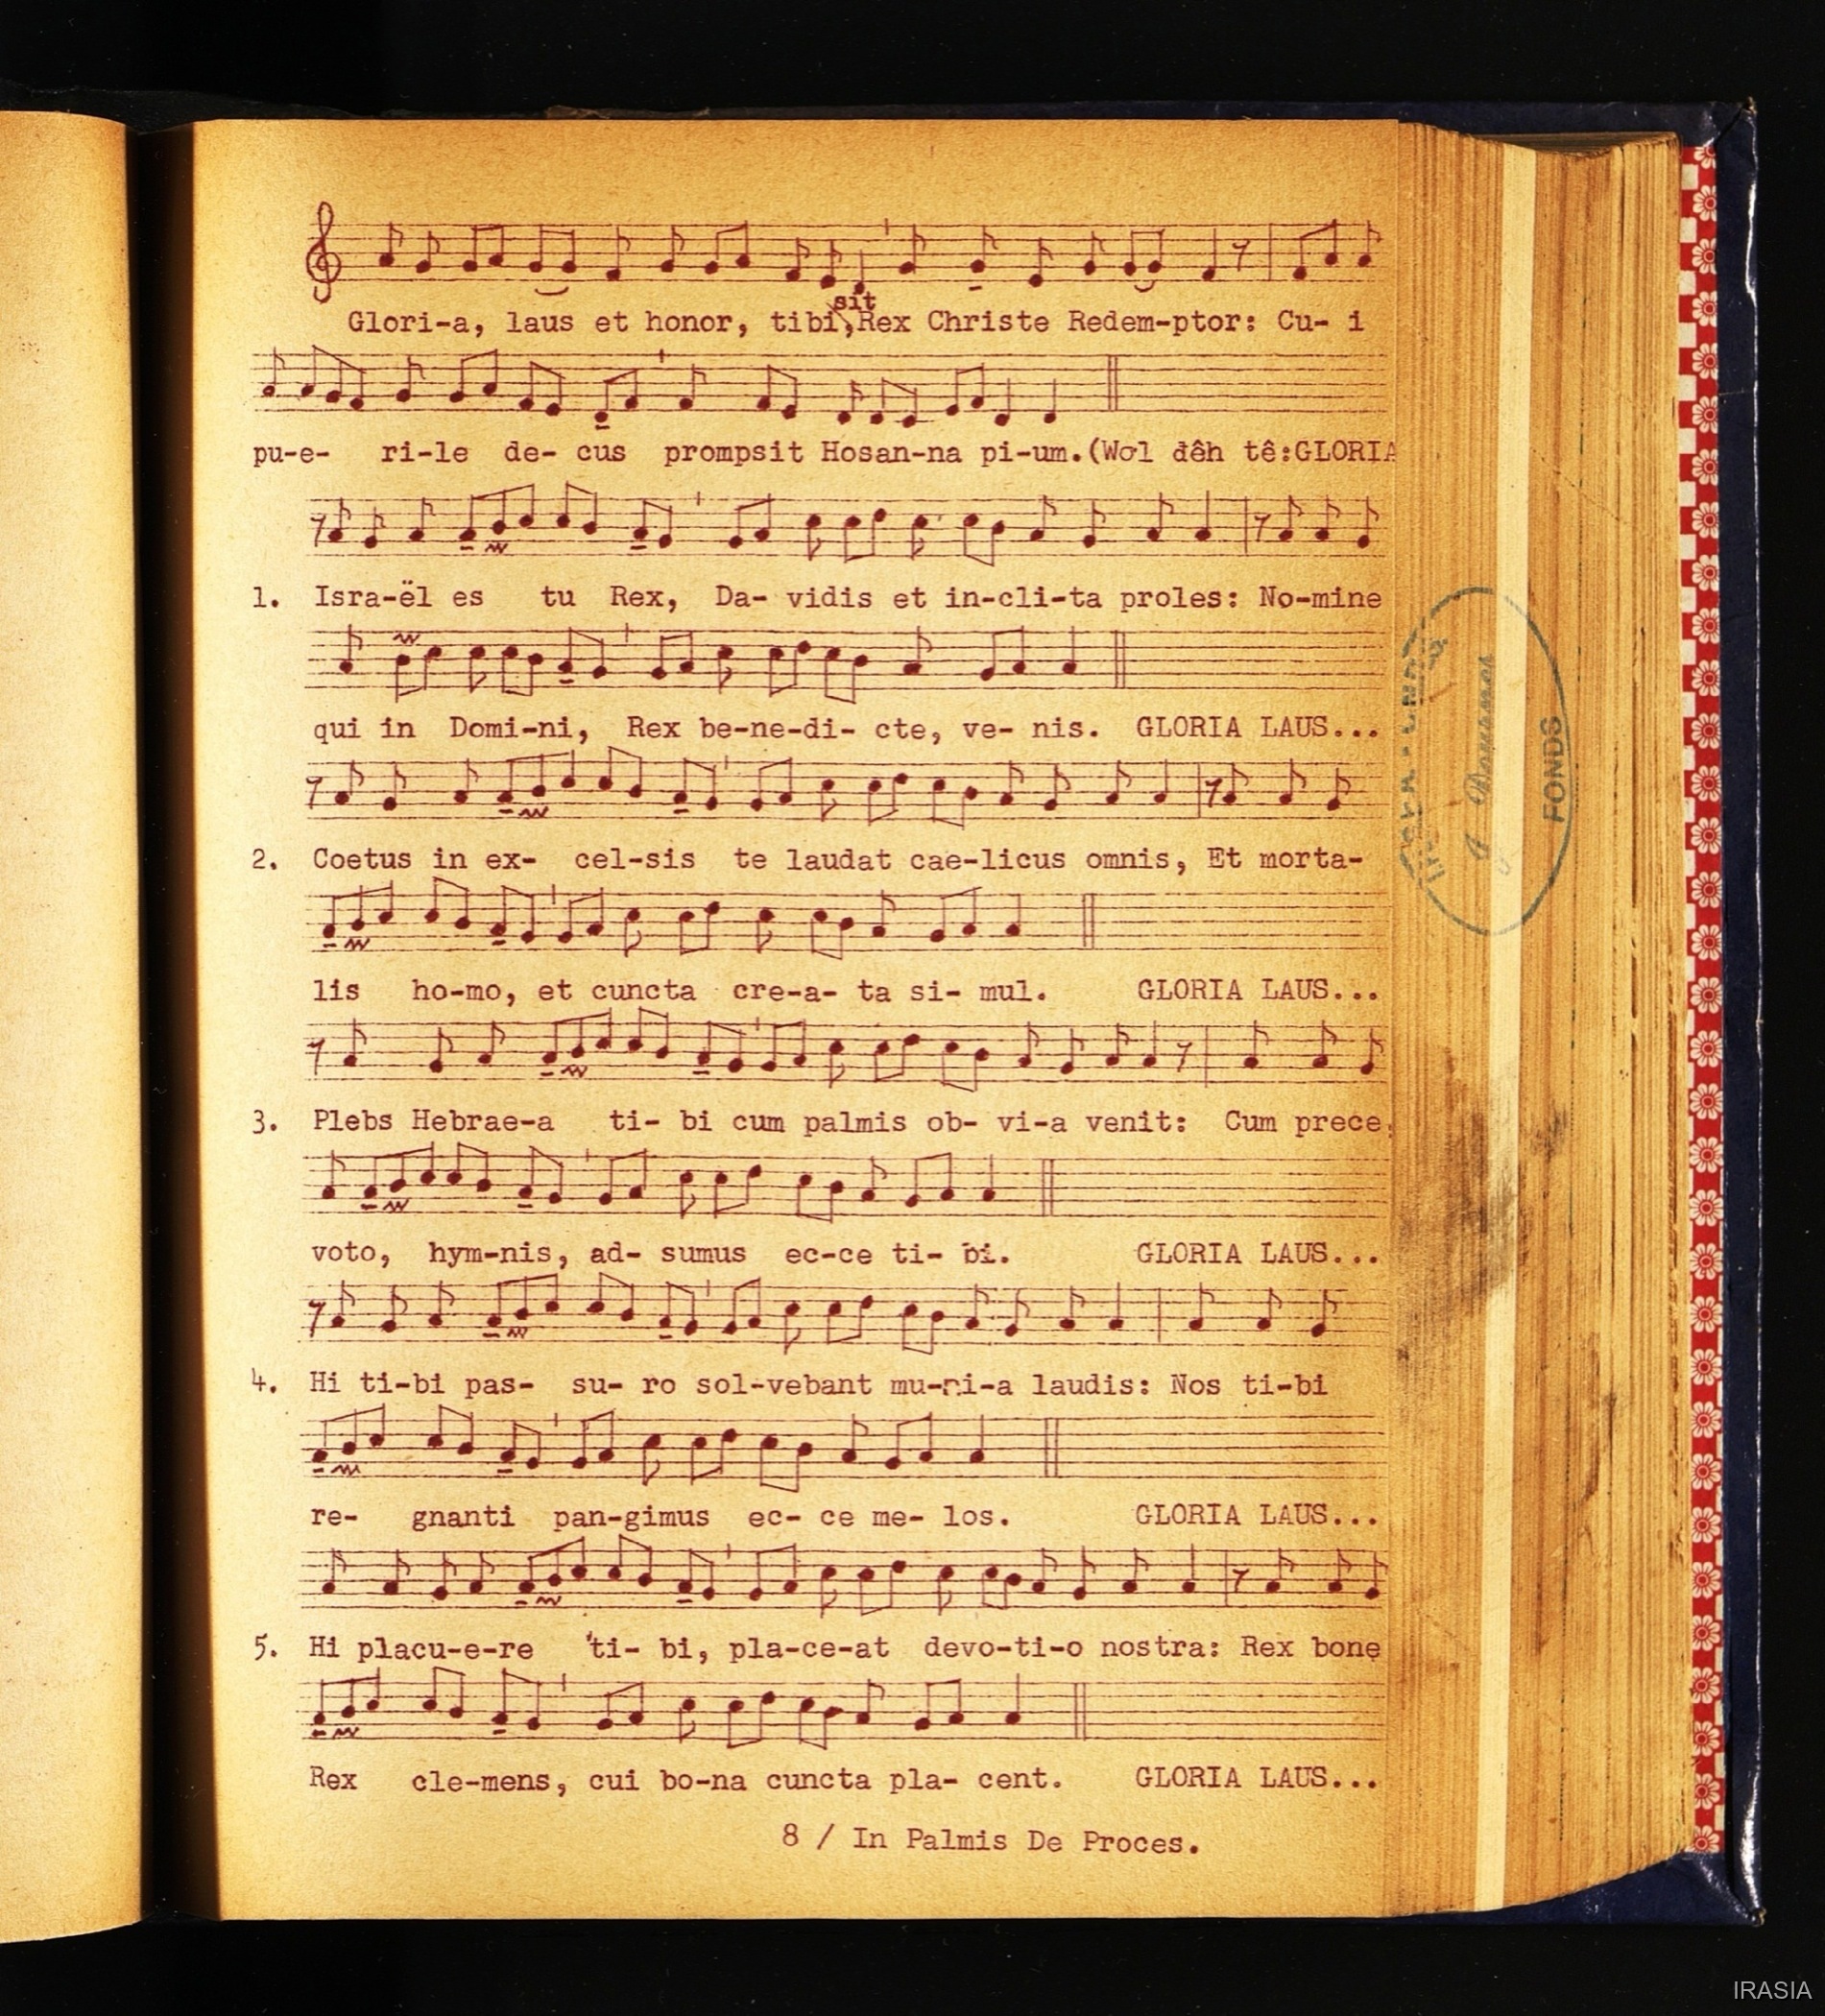 sit
Glori-a, laus et honor, tibi,Rex Christe Redem-ptor: Cu- i
pu-e- ri-le de- cus prompsit Hosan-na pi-um.(Wơl đêh tê:GLORIA
1. Isra-ël es tu Rex, Da- vidis et in-cli-ta proles: No-mine
qui in Domi-ni, Rex be-ne-di- cte, ve- nis. GLORIA LAUS...
2. Coetus in ex- cel-sis te laudat cae-licus omnis, Et morta-
lis ho-mo, et cuncta cre-a- ta si- mul. GLORIA LAUS...
3. Plebs Hebrae-a ti- bi cum palmis ob- vi-a venit: Cum prece
voto, hym-nis, ad- sumus ec-ce ti- bi. GLORIA LAUS...
4. Hi ti-bi pas- su- ro sol-vebant mu-ni-a laudis: Nos ti-bi
re- gnanti pan-gimus ec- ce me- los. GLORIA LAUS...
5. Hi placu-e-re ti- bi, pla-ce-at devo-ti-o nostra: Rex bone
Rex cle-mens, cui bo-na cuncta pla- cent. GLORIA LAUS...
8 / In Palmis De Proces.
FONDS
IRASIA